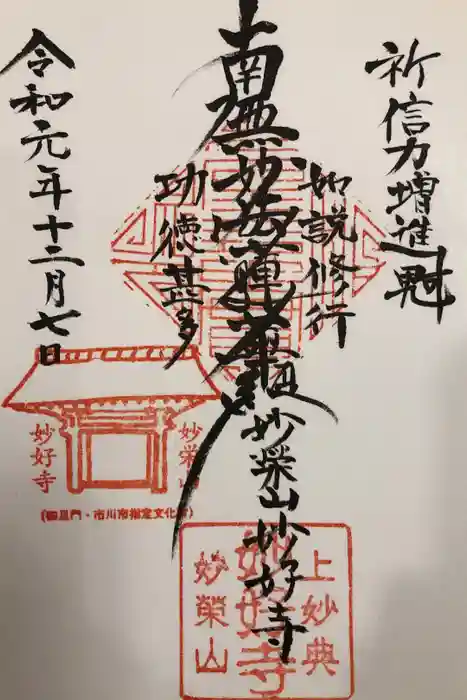 祈信力増進
如説修行
南無妙法蓮華経
妙榮山妙好寺
功徳甚多
令和元年十二月七日
妙栄山
妙好寺
市川市指定文化財
上妙典
妙好寺
妙榮山